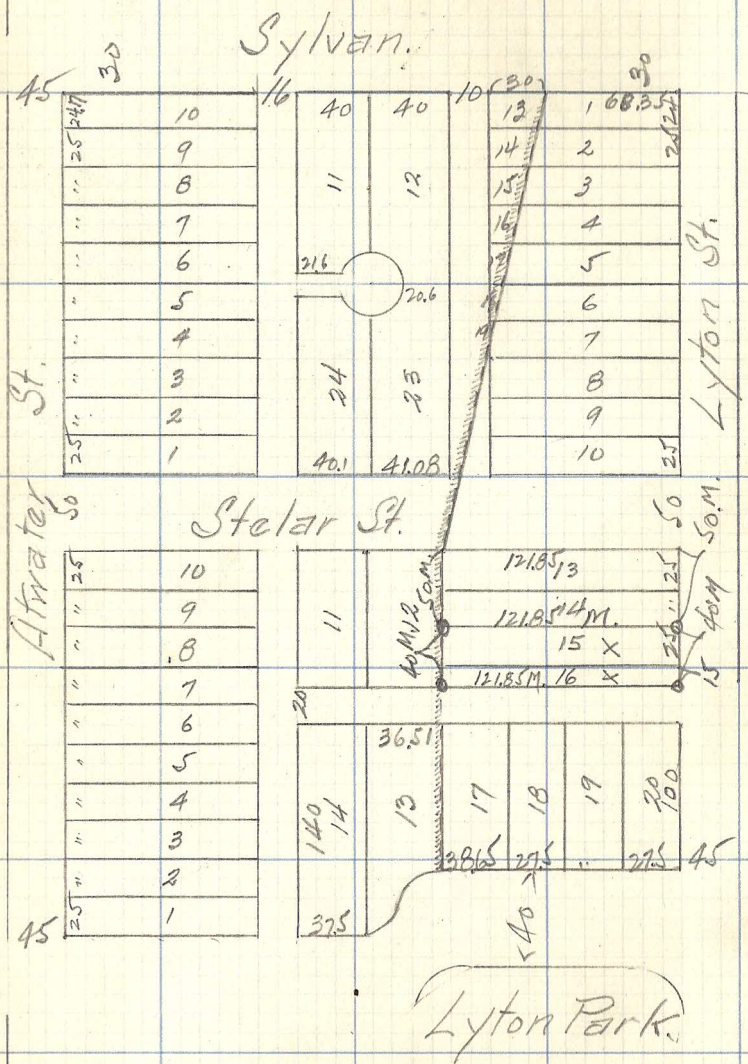 Sylvan.
45 30 16 10 (30) 30
24.7 10 40 40 13 1 68.35 24
25 9 14 2 25
" 8 11 12 15 3
" 7 16 4
" 6 21.6 5
" 5 20.6 6
" 4 7
" 3 24 23 8
" 2 9
25 1 40.1 41.08 10 25
Atwater St.
50
Stelar St.
50
Lyton St.
25 10 121.85 13 25 50.M.
" 9 11 12 50M 121.85 14 M. "
" 8 40M 15 X 25 40M
" 7 121.85M. 16 X 15
20
" 6 36.51
" 5
" 4 140 14 13 17 18 19 20 100
" 3
" 2 38.65 27.5 " 27.5 45
25 1 37.5
45
<40>
Lyton Park.